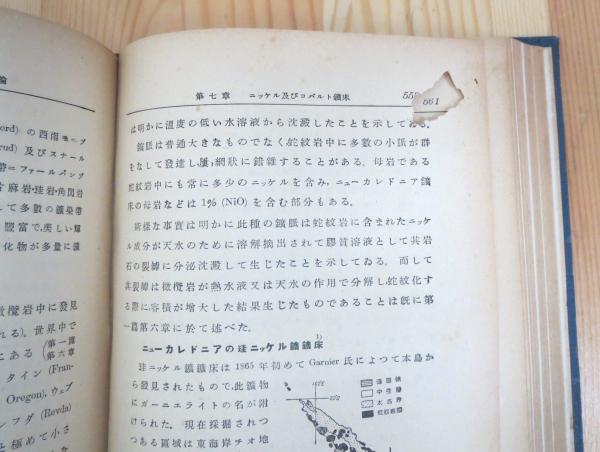 第七章 ニッケル及びコバルト鑛床
561
は明かに溫度の低い水溶液から沈澱したことを示してゐる.
鑛脈は普通大きなものでなく蛇紋岩中に多數の小脈が群
をなして發達し屢〻網狀に錯雜することがある. 母岩である
蛇紋岩中にも常に多少のニッケルを含み,ニューカレドニア鑛
床の母岩などは 1% (NiO) を含む部分もある.
斯樣な事實は明かに此種の鑛脈は蛇紋岩に含まれたニッケ
ル成分が天水のために溶解摘出されて膠質溶液として其岩
石の裂罅に分泌沈澱して生じたことを示してゐる. 而して
其裂罅は橄欖岩が熱水液又は天水の作用で分解し蛇紋化す
る際に容積が增大した結果生じたものであることは既に第
一篇第六章に於て述べた.
ニューカレドニアの珪ニッケル鑛鑛床 1)
珪ニッケル鑛鑛床は 1865 年初めて Garnier 氏によつて本島か
ら發見されたもので,此鑛物
にガーニエライトの名が附
けられた. 現在採掘されつ
つある區域は東海岸チオ地
中生層
太古界
蛇紋岩
論
ord) の西南
rud) 及びスナール
帶=ファールバンク
片麻岩·珪岩·角閃岩
して多數の鑛染帶
豐富で,美しい輝
化物が多量に
橄欖岩中に發見
れる). 世界中で
にある (第一篇第六章)
タイン (Fran-
Oregon), ウェブ
ンフダ (Revda)
と極めて小さ